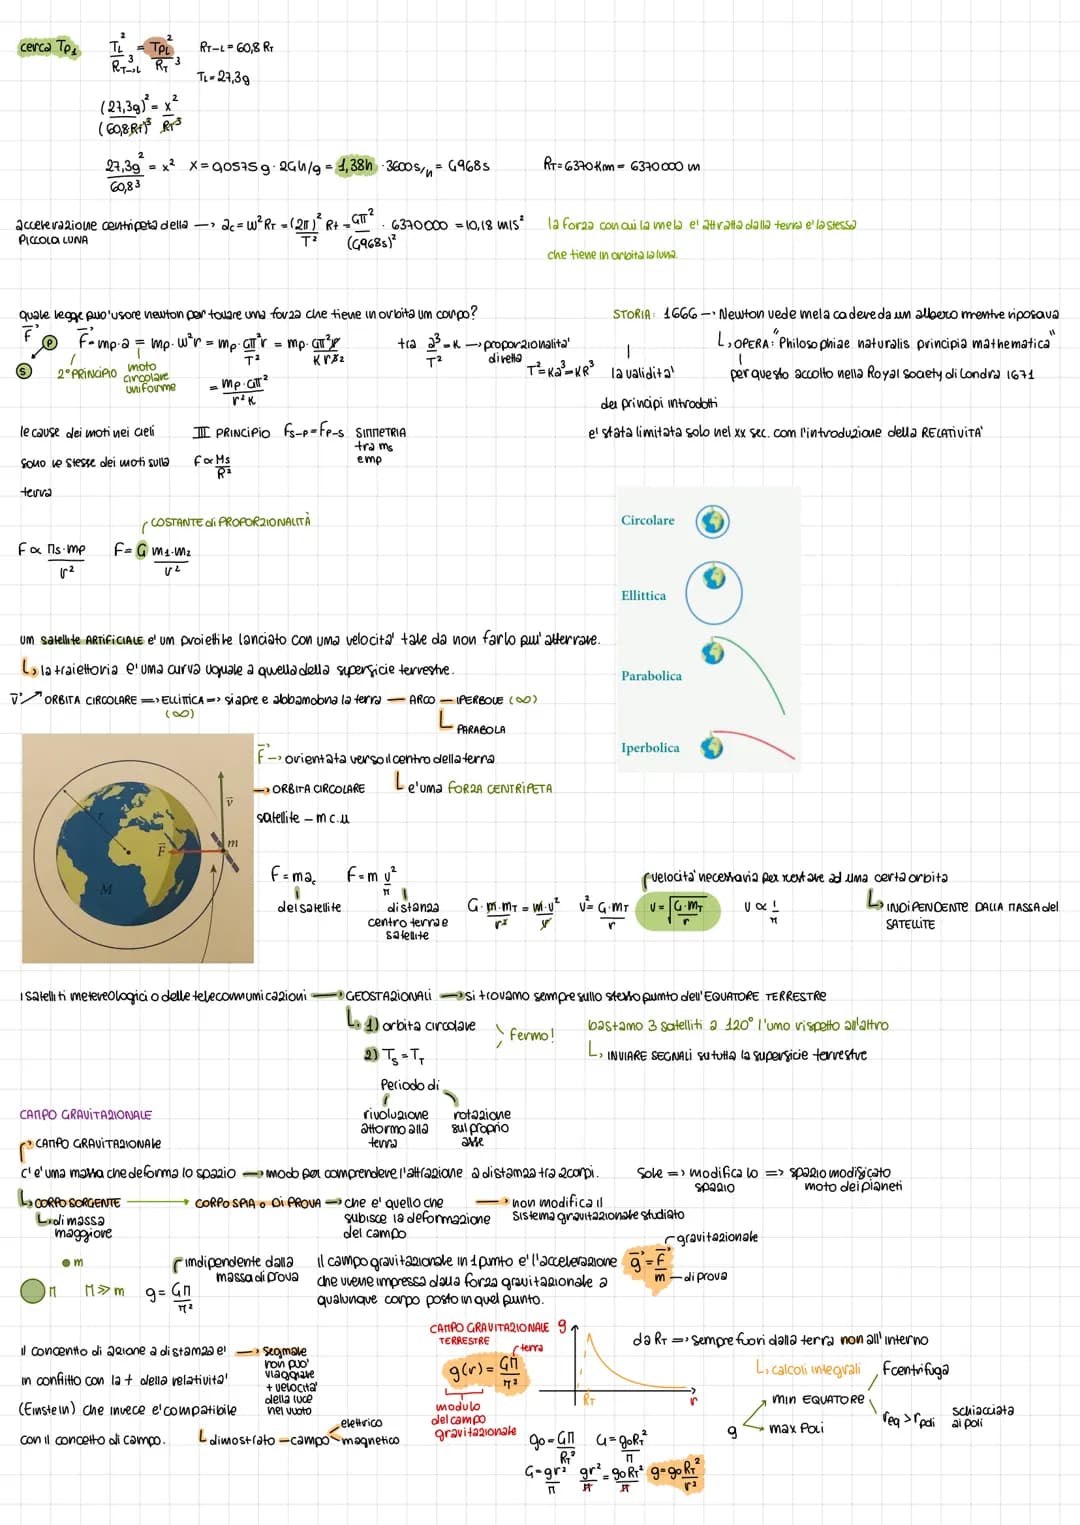 cerca Tp₁
T_L²/R_T→L³ = T_PL²/R_T³ R_T-L = 60,8 R_T
T_L = 27,3g
(27,3g)²/(60,8 R_T)³ = x²/R_T³
27,3g²/60,8³ = x² x = 0,0575g · 24h/g = 1,38h · 3600 s/h = 4968s R_T = 6370 Km = 6370000 m
accelerazione centripeta della PICCOLA LUNA → a_c = ω²R_T = (2π)²/T² R_T = 4π²/(4968s)² · 6370000 = 10,18 m/s²
la forza con cui la mela e' attratta dalla terra e' la stessa
che tiene in orbita la luna.
quale legge puo' usare newton per trovare una forza che tiene in orbita un corpo?
F P S
F = mp·a = mp·ω²r = mp·4π²r/T² = mp·4π²r/Kr³² tra a³/T² = K → proporzionalita' diretta
T² = Ka³ = KR³
2° PRINCIPIO moto circolare uniforme
= mp·4π²/r²K
STORIA: 1666 → Newton vede mela cadere da un albero mentre riposava
OPERA: "Philosophiae naturalis principia mathematica"
per questo accolto nella Royal society di Londra 1671
la validita'
dei principi introdotti
e' stata limitata solo nel XX sec. con l'introduzione della RELATIVITA'
le cause dei moti nei cieli
sono le stesse dei moti sulla
terra
III PRINCIPIO Fs-p = Fp-s SIMMETRIA
tra ms
e mp
F ∝ Ms/R²
COSTANTE di PROPORZIONALITÀ
F ∝ Ms·mp/r² F = G m₁·m₂/r²
Circolare
Ellittica
Parabolica
Iperbolica
un satellite ARTIFICIALE e' un proiettile lanciato con una velocita' tale da non farlo piu' atterrare.
la traiettoria e' una curva uguale a quella della superficie terrestre.
v ORBITA CIRCOLARE => ELLITTICA => si apre e abbandona la terra — ARCO — IPERBOLE (∞)
(∞)
PARABOLA
r F v m M
F → orientata verso il centro della terra
→ ORBITA CIRCOLARE e' una FORZA CENTRIPETA
satellite – m.c.u
F = ma_c F = m v²/r
del satellite
distanza
centro terra e
satellite
G·m·m_T/r² = m·v²/r v² = G·m_T/r v = √G·m_T/r v ∝ 1/r
velocita' necessaria per restare ad una certa orbita
INDIPENDENTE DALLA MASSA del
SATELLITE
I satelliti metereologici o delle telecomunicazioni → GEOSTAZIONALI → si trovano sempre sullo stesso punto dell'EQUATORE TERRESTRE
1) orbita circolare
2) Ts = T_T
fermo!
bastano 3 satelliti a 120° l'uno rispetto all'altro
INVIARE SEGNALI su tutta la superficie terrestre
Periodo di
rivoluzione
attorno alla
terra
rotazione
sul proprio
asse
CAMPO GRAVITAZIONALE
CAMPO GRAVITAZIONALE
c'e' una massa che deforma lo spazio → modo per comprendere l'attrazione a distanza tra 2 corpi.
Sole => modifica lo spazio => spazio modificato
moto dei pianeti
CORPO SORGENTE → CORPO SPIA o DI PROVA → che e' quello che
subisce la deformazione
del campo
→ non modifica il
sistema gravitazionale studiato
di massa
maggiore
m
M M >> m g = GM/r²
indipendente dalla
massa di prova
il campo gravitazionale in 1 punto e' l'accelerazione
che viene impressa dalla forza gravitazionale a
qualunque corpo posto in quel punto.
g = F/m
gravitazionale
di prova
il concentto di azione a distanza e'
in conflitto con la t della relativita'
(Einstein) che invece e' compatibile
con il concetto di campo.
segnale
non puo'
viaggiare
+ velocita'
della luce
nel vuoto
dimostrato – campo elettrico
magnetico
CAMPO GRAVITAZIONALE
TERRESTRE
terra
g(r) = GM/r²
modulo
del campo
gravitazionale
g R_T r
da R_T => sempre fuori dalla terra non all'interno
calcoli integrali
g min EQUATORE
max Poli
Fcentrifuga
req > rpoli schiacciata
ai poli
g₀ = GM/R_T² G = g₀R_T²/M
G = gr²/M gr²/M = g₀R_T²/M g = g₀ R_T²/r²